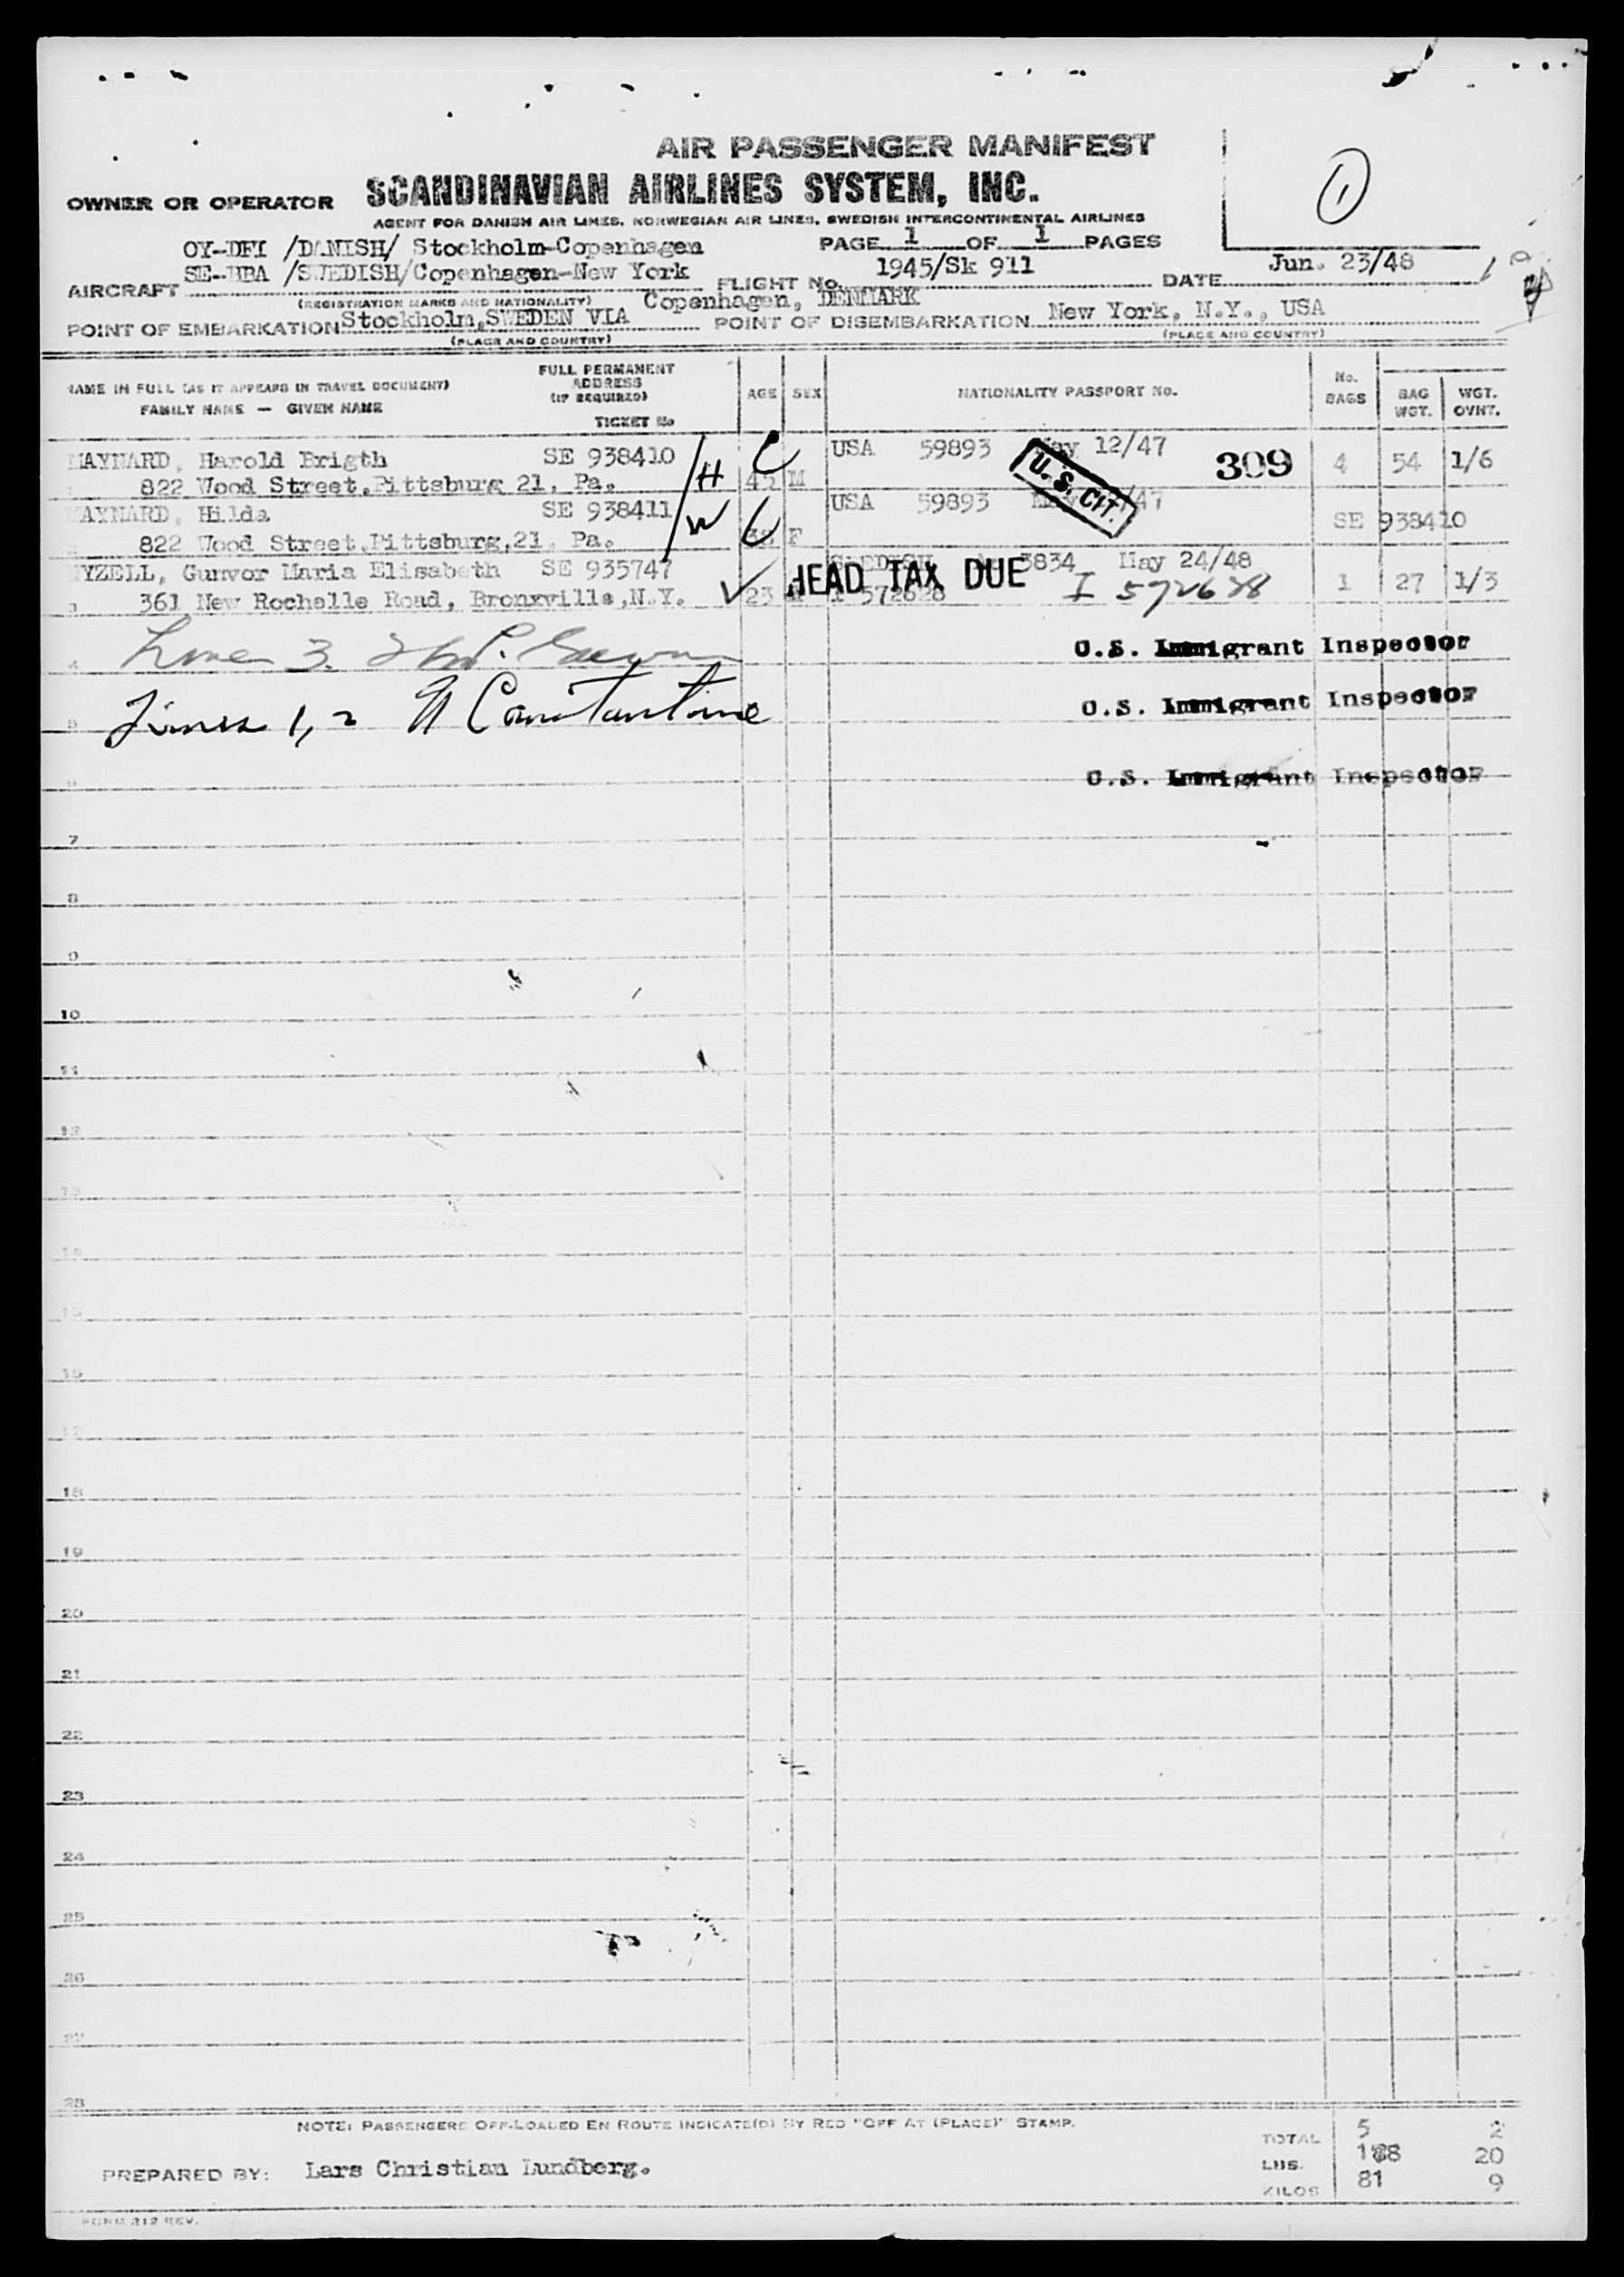 AIR PASSENGER MANIFEST
1
OWNER OR OPERATOR SCANDINAVIAN AIRLINES SYSTEM, INC.
AGENT FOR DANISH AIR LINES, NORWEGIAN AIR LINES, SWEDISH INTERCONTINENTAL AIRLINES
OY-DFI /DANISH/ Stockholm-Copenhagen PAGE 1 OF 1 PAGES
AIRCRAFT SE-BBA /SWEDISH/Copenhagen-New York FLIGHT No. 1945/Sk 911 DATE Jun. 23/48
(REGISTRATION MARKS AND NATIONALITY) Copenhagen, DENMARK
POINT OF EMBARKATION Stockholm,SWEDEN VIA POINT OF DISEMBARKATION New York, N.Y., USA
(PLACE AND COUNTRY) (PLACE AND COUNTRY)
NAME IN FULL (AS IT APPEARS IN TRAVEL DOCUMENT) FULL PERMANENT ADDRESS (IF REQUIRED) AGE SEX NATIONALITY PASSPORT No. No. BAGS BAG WGT. WGT. OVHT.
FAMILY NAME — GIVEN NAME
TICKET No
MAYNARD, Harold Brigth SE 938410 H C USA 59893 May 12/47 309 4 54 1/6
822 Wood Street,Pittsburg 21, Pa. 45 M
U.S. CIT.
MAYNARD, Hilda SE 938411 W C USA 59893 /47 SE 938410
822 Wood Street,Pittsburg,21, Pa. F
YZELL, Gunvor Maria Elisabeth SE 935747 SWEDISH 3834 May 24/48
HEAD TAX DUE
3 361 New Rochelle Road, Bronxville,N.Y. 23 I 572628 I 572628 1 27 1/3
4 Line 3. U.S. Immigrant Inspector
5 Lines 1, 2 Constantine U.S. Immigrant Inspector
6 U.S. Immigrant Inspector
7
8
9
10
11
12
13
14
15
16
17
18
19
20
21
22
23
24
25
26
27
28
NOTE: PASSENGERS OFF-LOADED EN ROUTE INDICATE(D) BY RED "OFF AT (PLACE)" STAMP.
TOTAL 5 2
LBS. 188 20
PREPARED BY: Lars Christian Lundberg.
KILOS 81 9
FORM 312 REV.